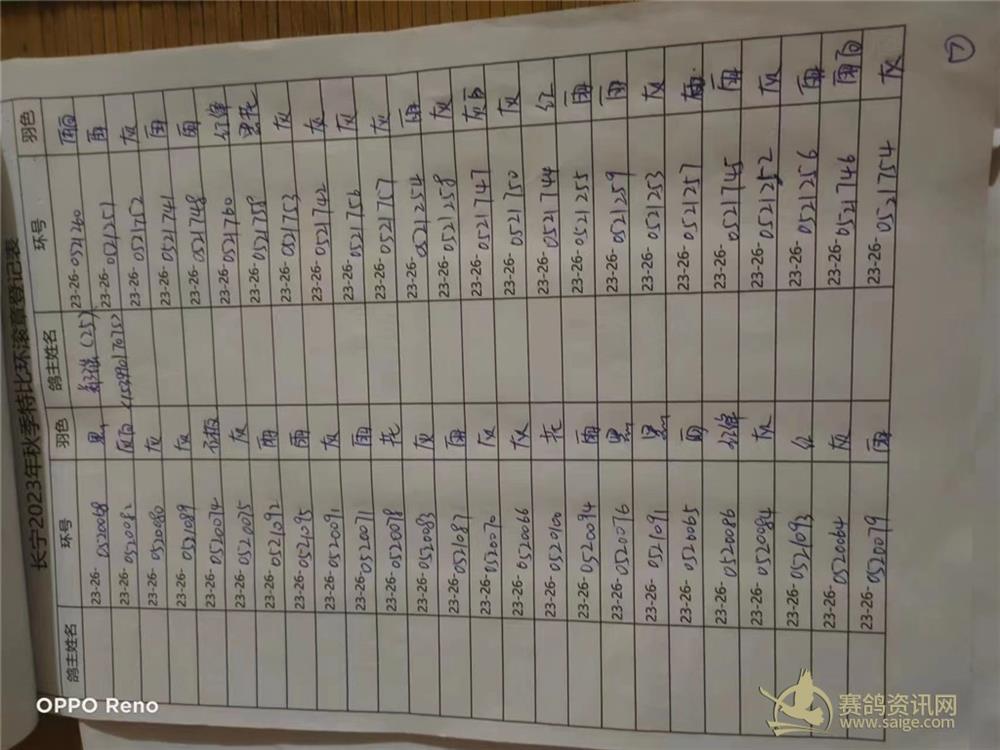 长宁2023年秋季特比环滚章登记表
鸽主姓名 环号 羽色 鸽主姓名 环号 羽色
23-26-0520068 黑 (25) 23-26-0521260 雨白
23-26-0520082 灰白 23-26-0521251 雨
23-26-0520080 灰 23-26-0521752 灰
23-26-0521089 灰 23-26-0521741 雨
23-26-0520074 23-26-0521748 雨
23-26-0520075 灰 23-26-0521760 红绛
23-26-0521092 雨 23-26-0521758 黑花
23-26-0521095 雨 23-26-0521753 灰
23-26-0520091 灰 23-26-0521742 灰
23-26-0520071 雨 23-26-0521756 灰
23-26-0520078 花 23-26-0521757 灰
23-26-0520083 灰 23-26-0521254 雨
23-26-0521087 雨 23-26-0521258 灰
23-26-0520070 灰 23-26-0521747 灰白
23-26-0520066 灰 23-26-0521750 灰
23-26-0520100 花 23-26-0521744 红
23-26-0520094 雨 23-26-0521255 雨
23-26-0520076 黑 23-26-0521259 雨
23-26-0521091 黑 23-26-0521253 灰
23-26-0520065 雨 23-26-0521257
23-26-0520086 红绛 23-26-0521745 雨
23-26-0520084 灰 23-26-0521252 灰
23-26-0521093 红 23-26-0521256 雨
23-26-0520064 灰 23-26-0521746 雨白
23-26-0520079 雨 23-26-0521754 灰
OPPO Reno
赛鸽资讯网
www.saige.com